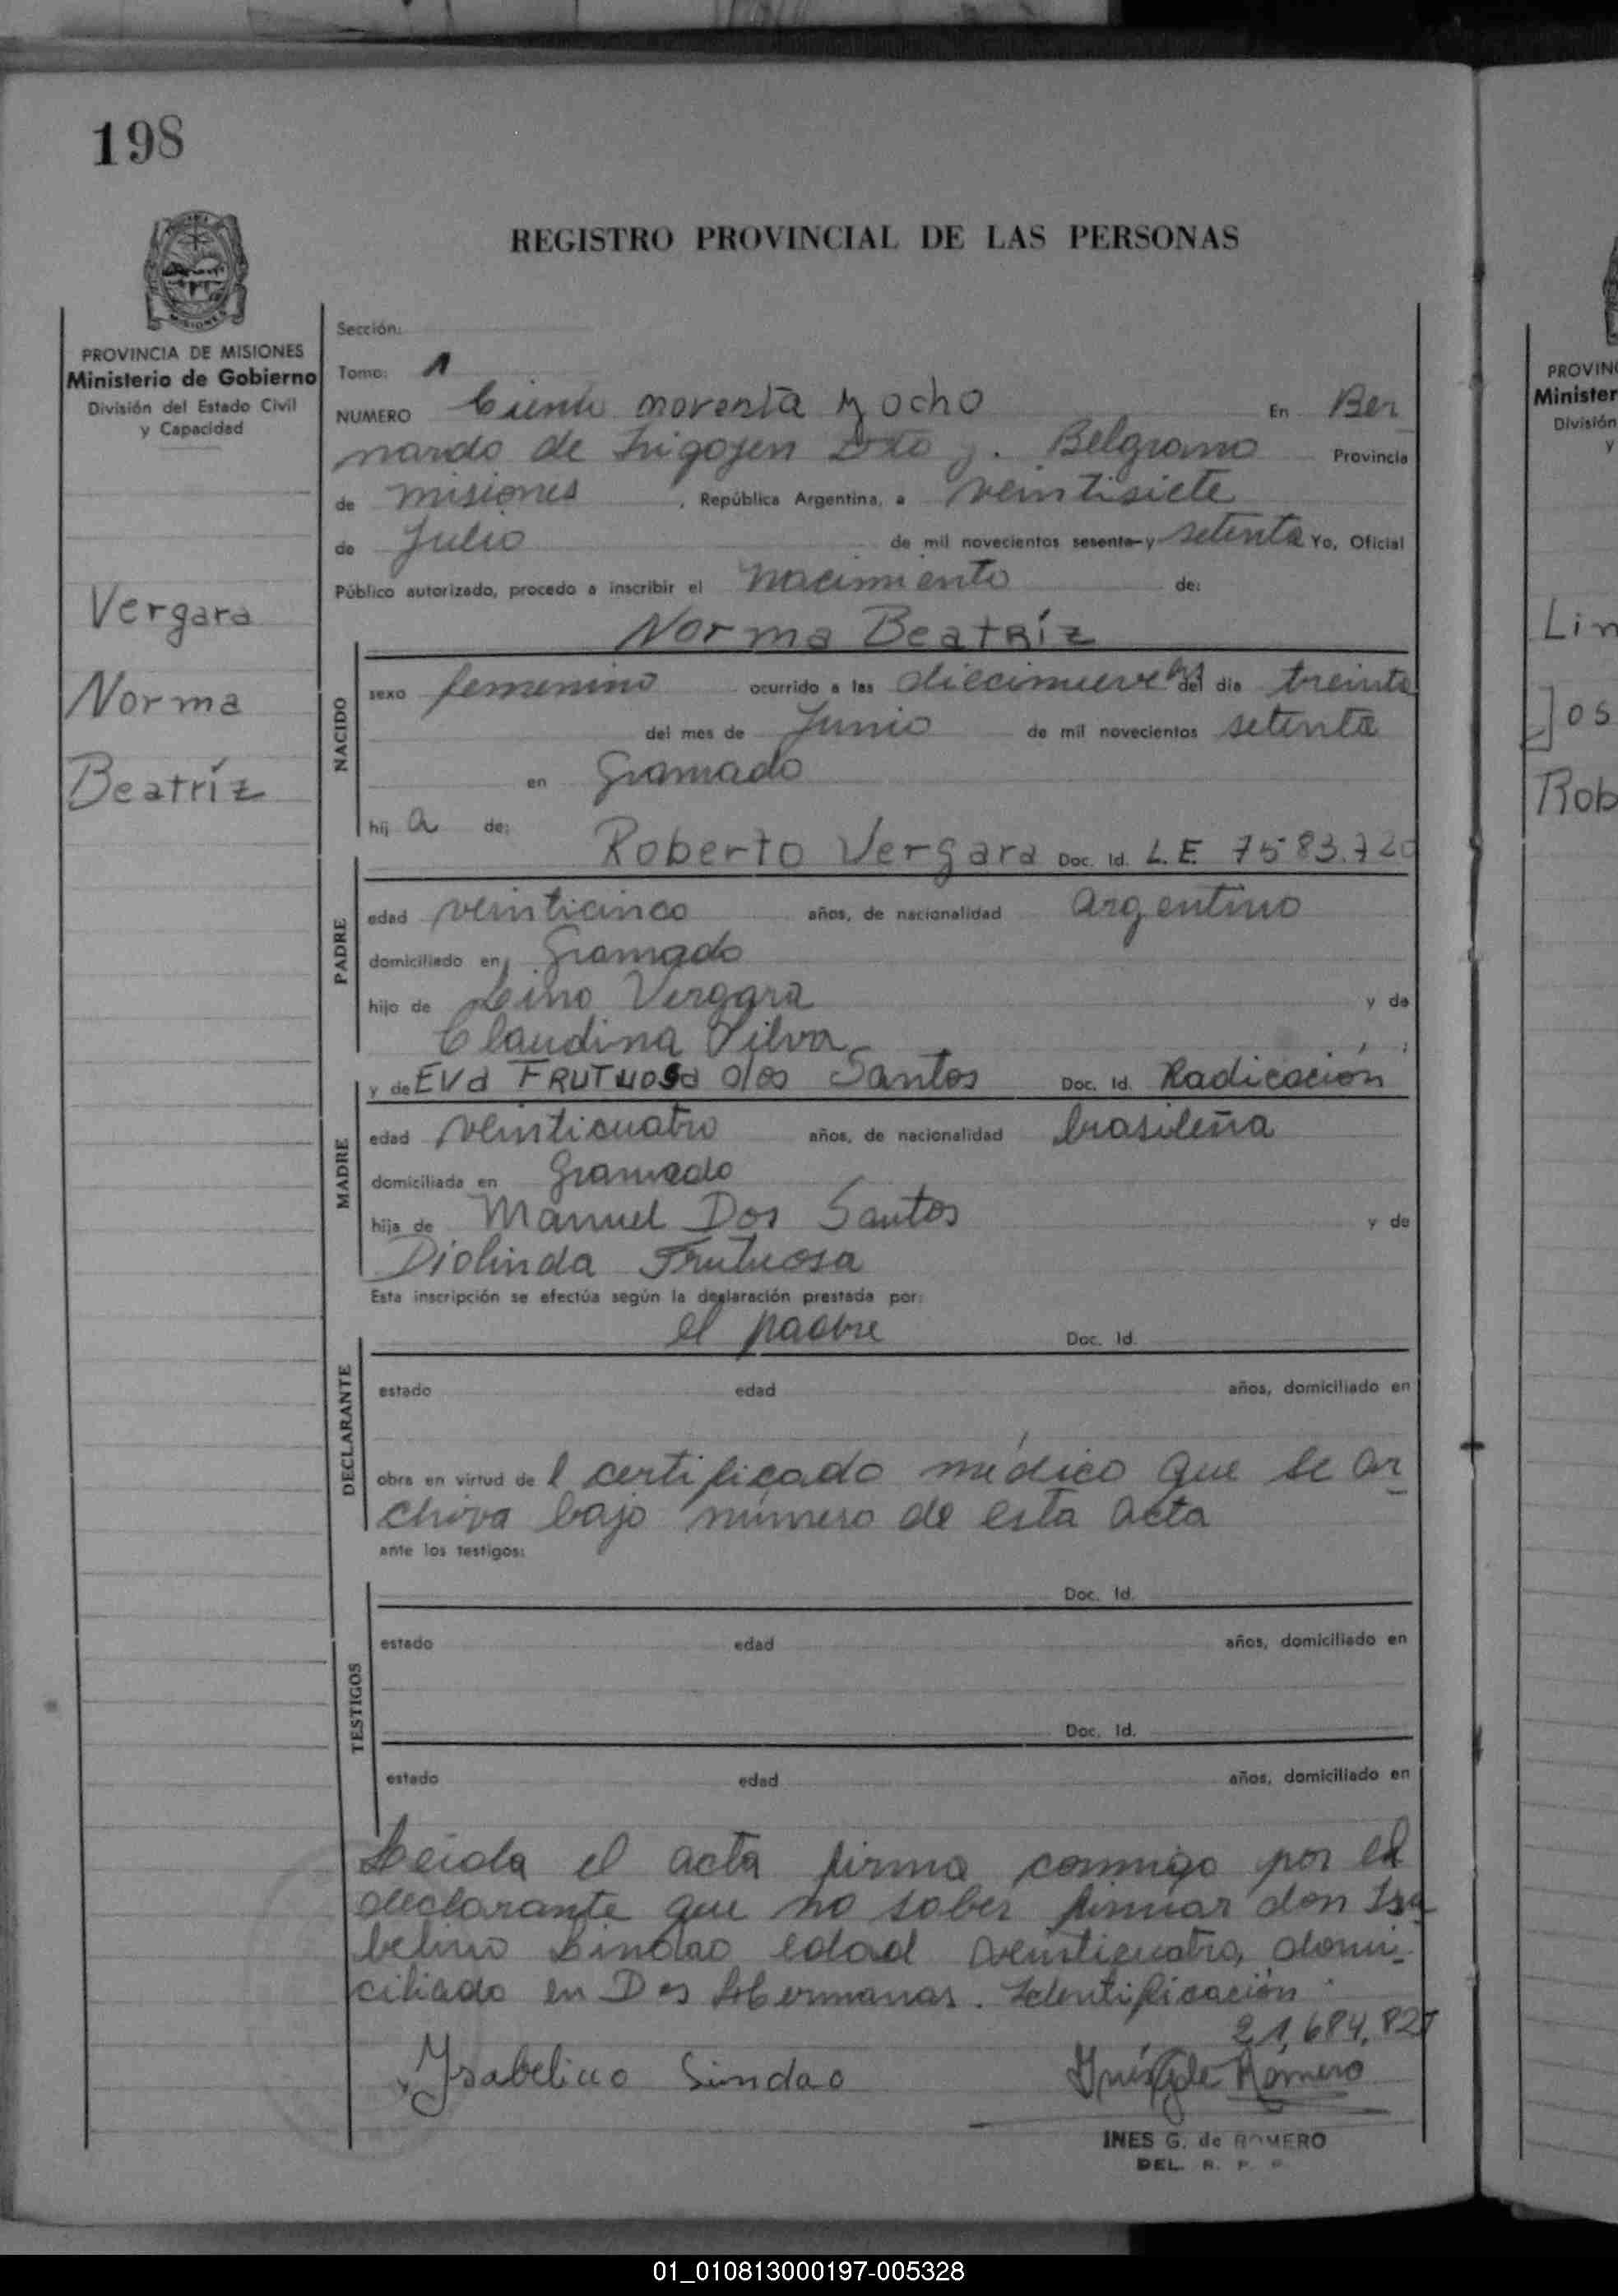 198
REGISTRO PROVINCIAL DE LAS PERSONAS
MISIONES
PROVINCIA DE MISIONES
Ministerio de Gobierno
División del Estado Civil
y Capacidad
Vergara
Norma
Beatríz
Sección:
Tomo: 1
NUMERO Ciento noventa y ocho En Ber
nardo de Irigoyen Dto g. Belgrano Provincia
de misiones, República Argentina, a veintisiete
de Julio de mil novecientos sesenta y setenta Yo, Oficial
Público autorizado, procedo a inscribir el nacimiento de:
Norma Beatríz
NACIDO
sexo femenino ocurrido a las diecinueve hs del dia treinta
del mes de Junio de mil novecientos setenta
en Gramado
hij a de:
Roberto Vergara Doc. Id. L.E. 7583.720
PADRE
edad veinticinco años, de nacionalidad argentino
domiciliado en Gramado
hijo de Lino Vergara y de
Claudina Silva
y de Eva FRUTUOSA dos Santos Doc. Id. Radicación
MADRE
edad veinticuatro años, de nacionalidad brasileña
domiciliada en Gramado
hija de Manuel Dos Santos y de
Diolinda Frutuosa
Esta inscripción se efectúa según la declaración prestada por:
el padre Doc. Id.
DECLARANTE
estado edad años, domiciliado en
obra en virtud de l certificado médico que se ar
chiva bajo número de esta acta
ante los testigos:
Doc. Id.
TESTIGOS
estado edad años, domiciliado en
Doc. Id.
estado edad años, domiciliado en
Leida el acta firma conmigo por el
declarante que no saber firmar don Isa
belino Sindao edad veinticuatro, domi
ciliado en Dos Hermanas. Identificación
21,684,827
Ysabelino Sindao Inés G de Romero
INES G. de ROMERO
DEL. R. P. P.
PROVIN
Minister
División
y
Lin
Jos
Rob
01_010813000197-005328